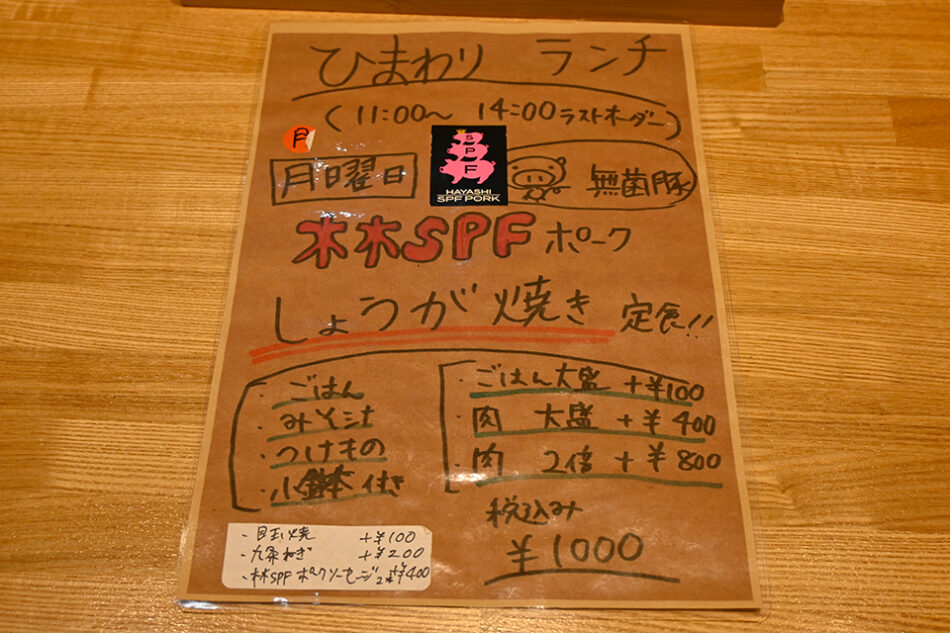 ひまわり ランチ
(11:00〜 14:00ラストオーダー)
月
月曜日
SPF
HAYASHI
SPF PORK
無菌豚
林SPFポーク
しょうが焼き 定食!!
・ごはん
・みそ汁
・つけもの
・小鉢付き
・ごはん大盛 +¥100
・肉 大盛 +¥400
・肉 2倍 +¥800
税込み
¥1000
・目玉焼 +¥100
・九条ねぎ +¥200
・林SPFポークソーセージ2本¥400